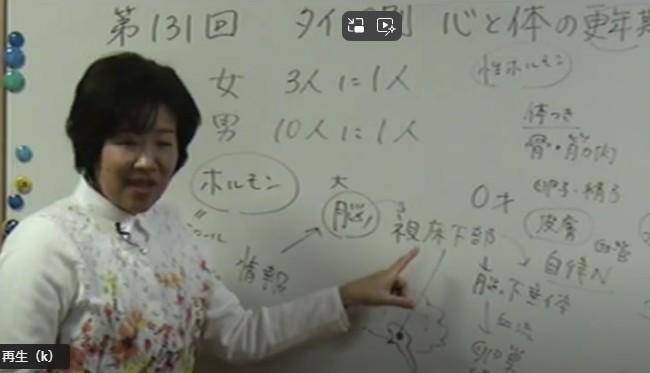 第131回 タイ 別 心と体の更年期
女 3人に1人
男 10人に1人
性ホルモン
体つき
骨・筋肉
卵子・精子
ホルモン
大
脳
0才
視床下部
皮膚
血管
自律N
情報
脳下垂体
血流
卵巣
再生 (k)